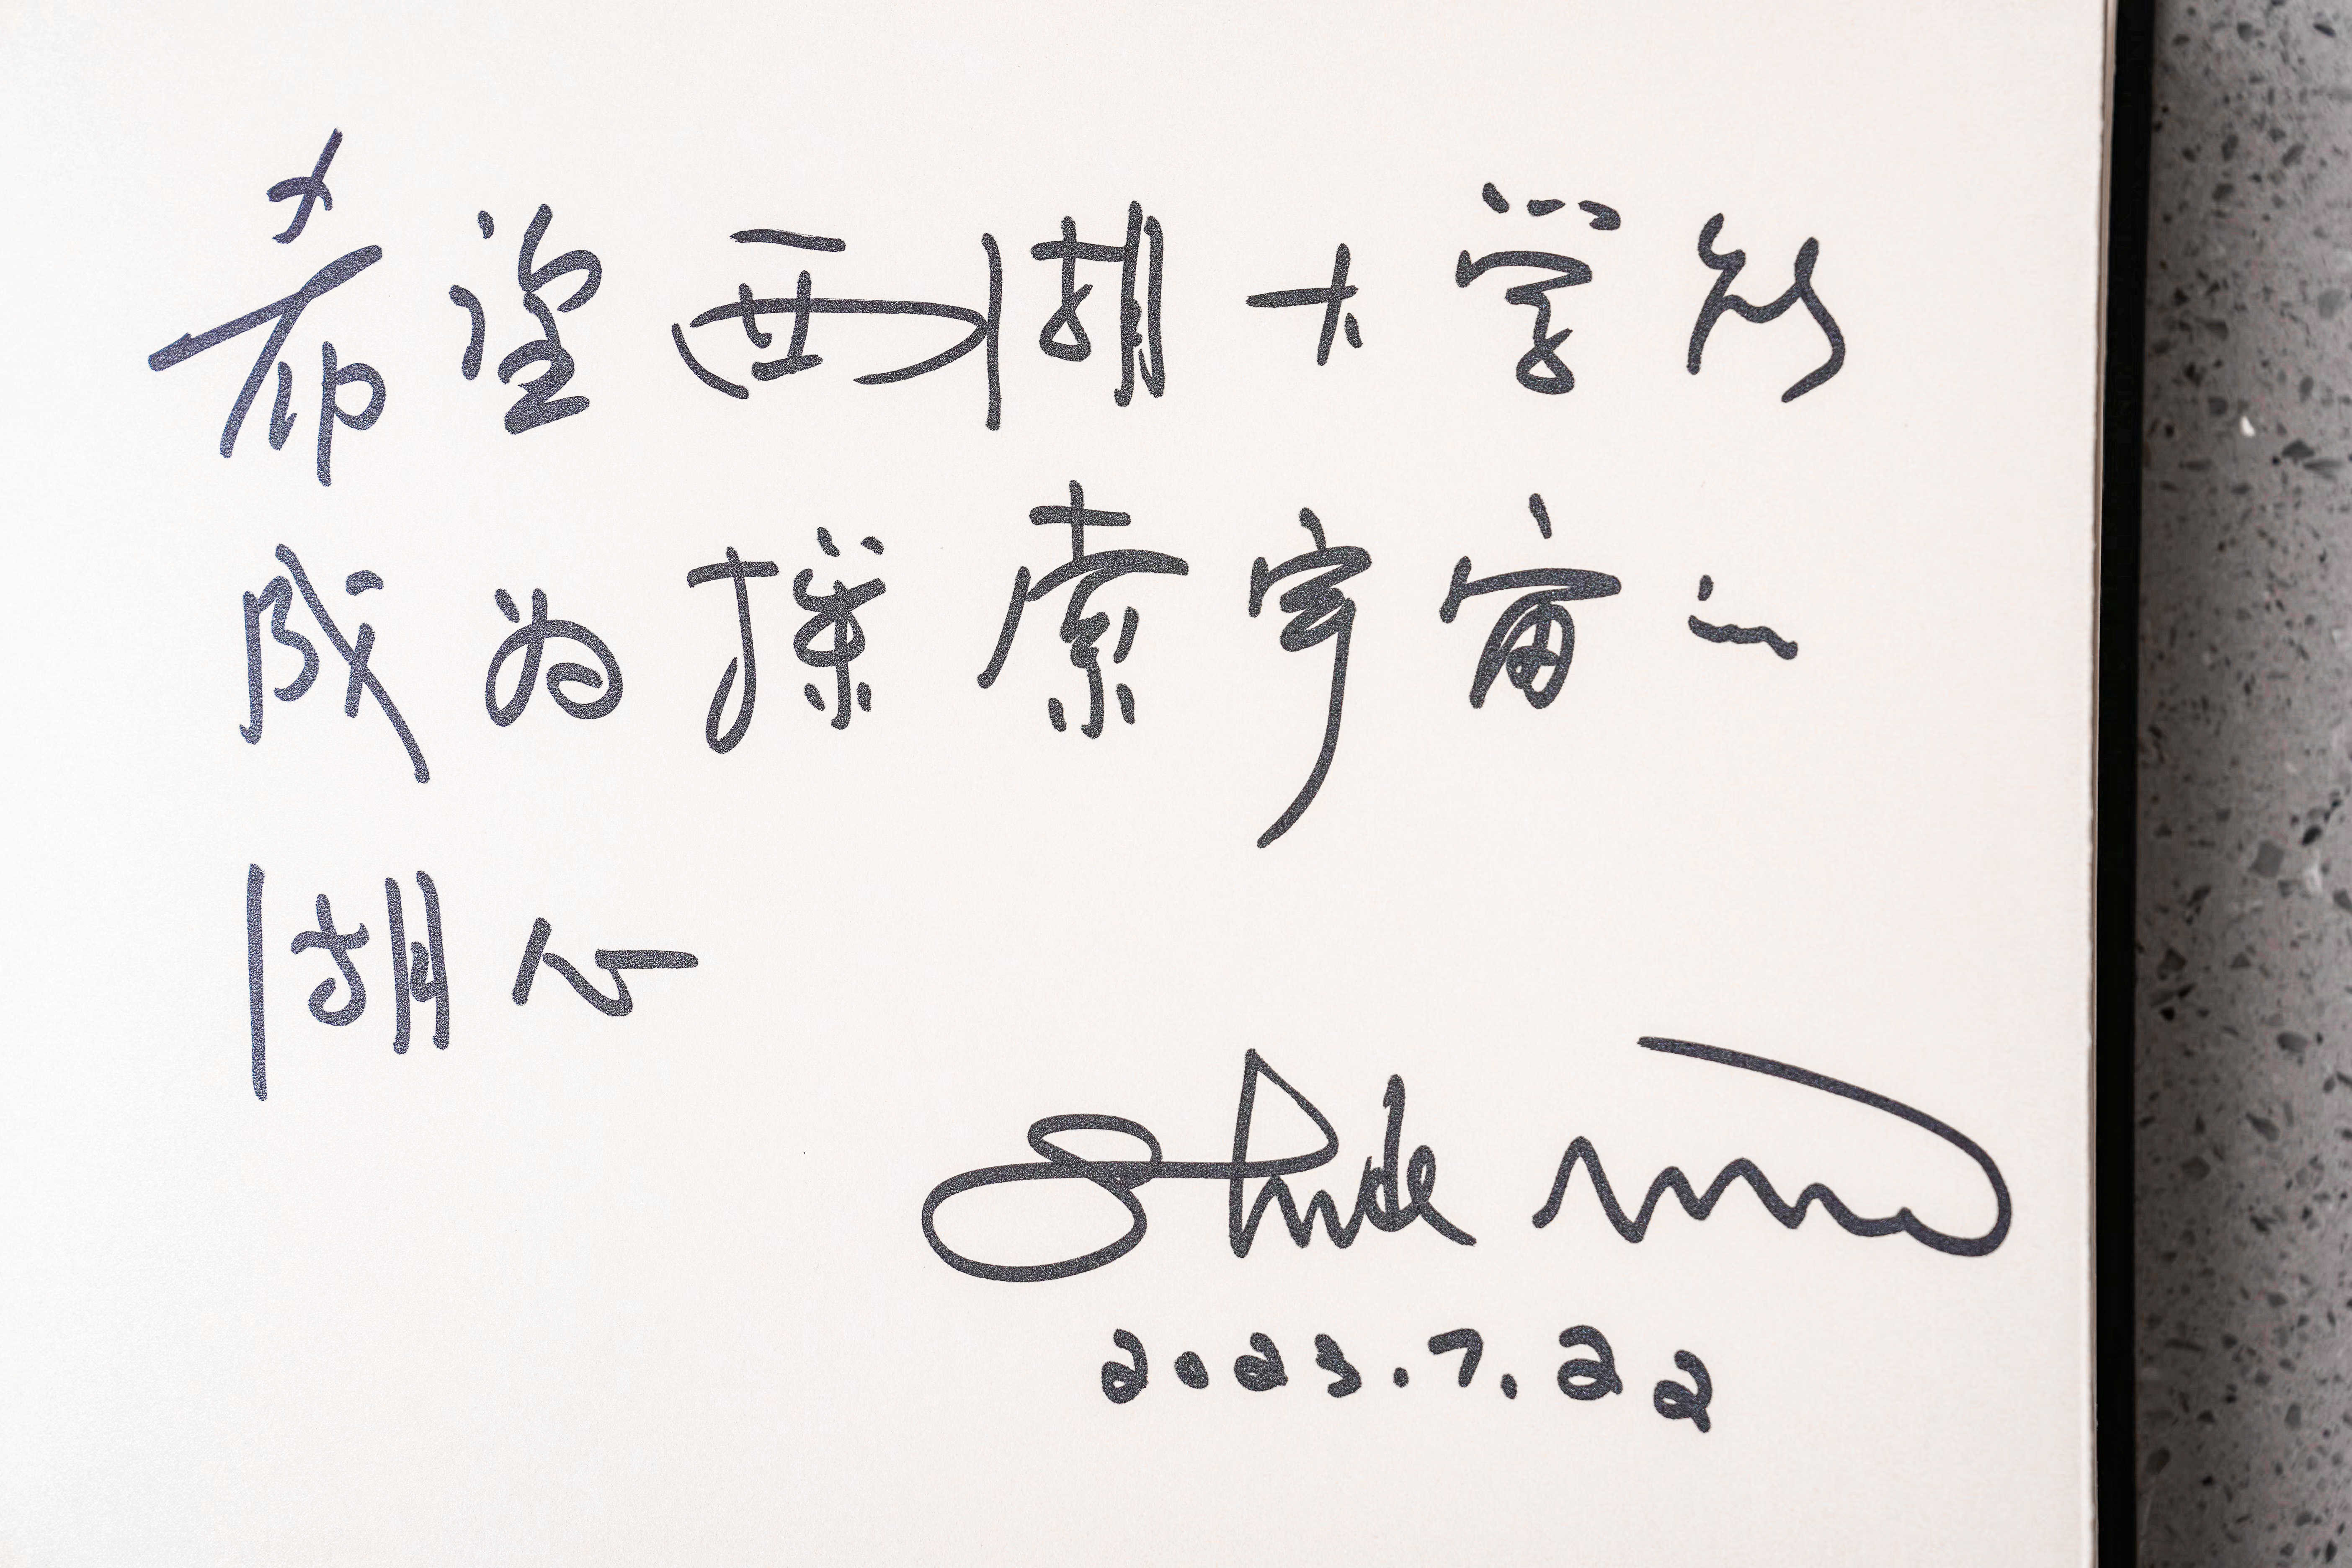 希望西湖大学能
成为探索宇宙一
湖心
Shude Mao
2023.7.22